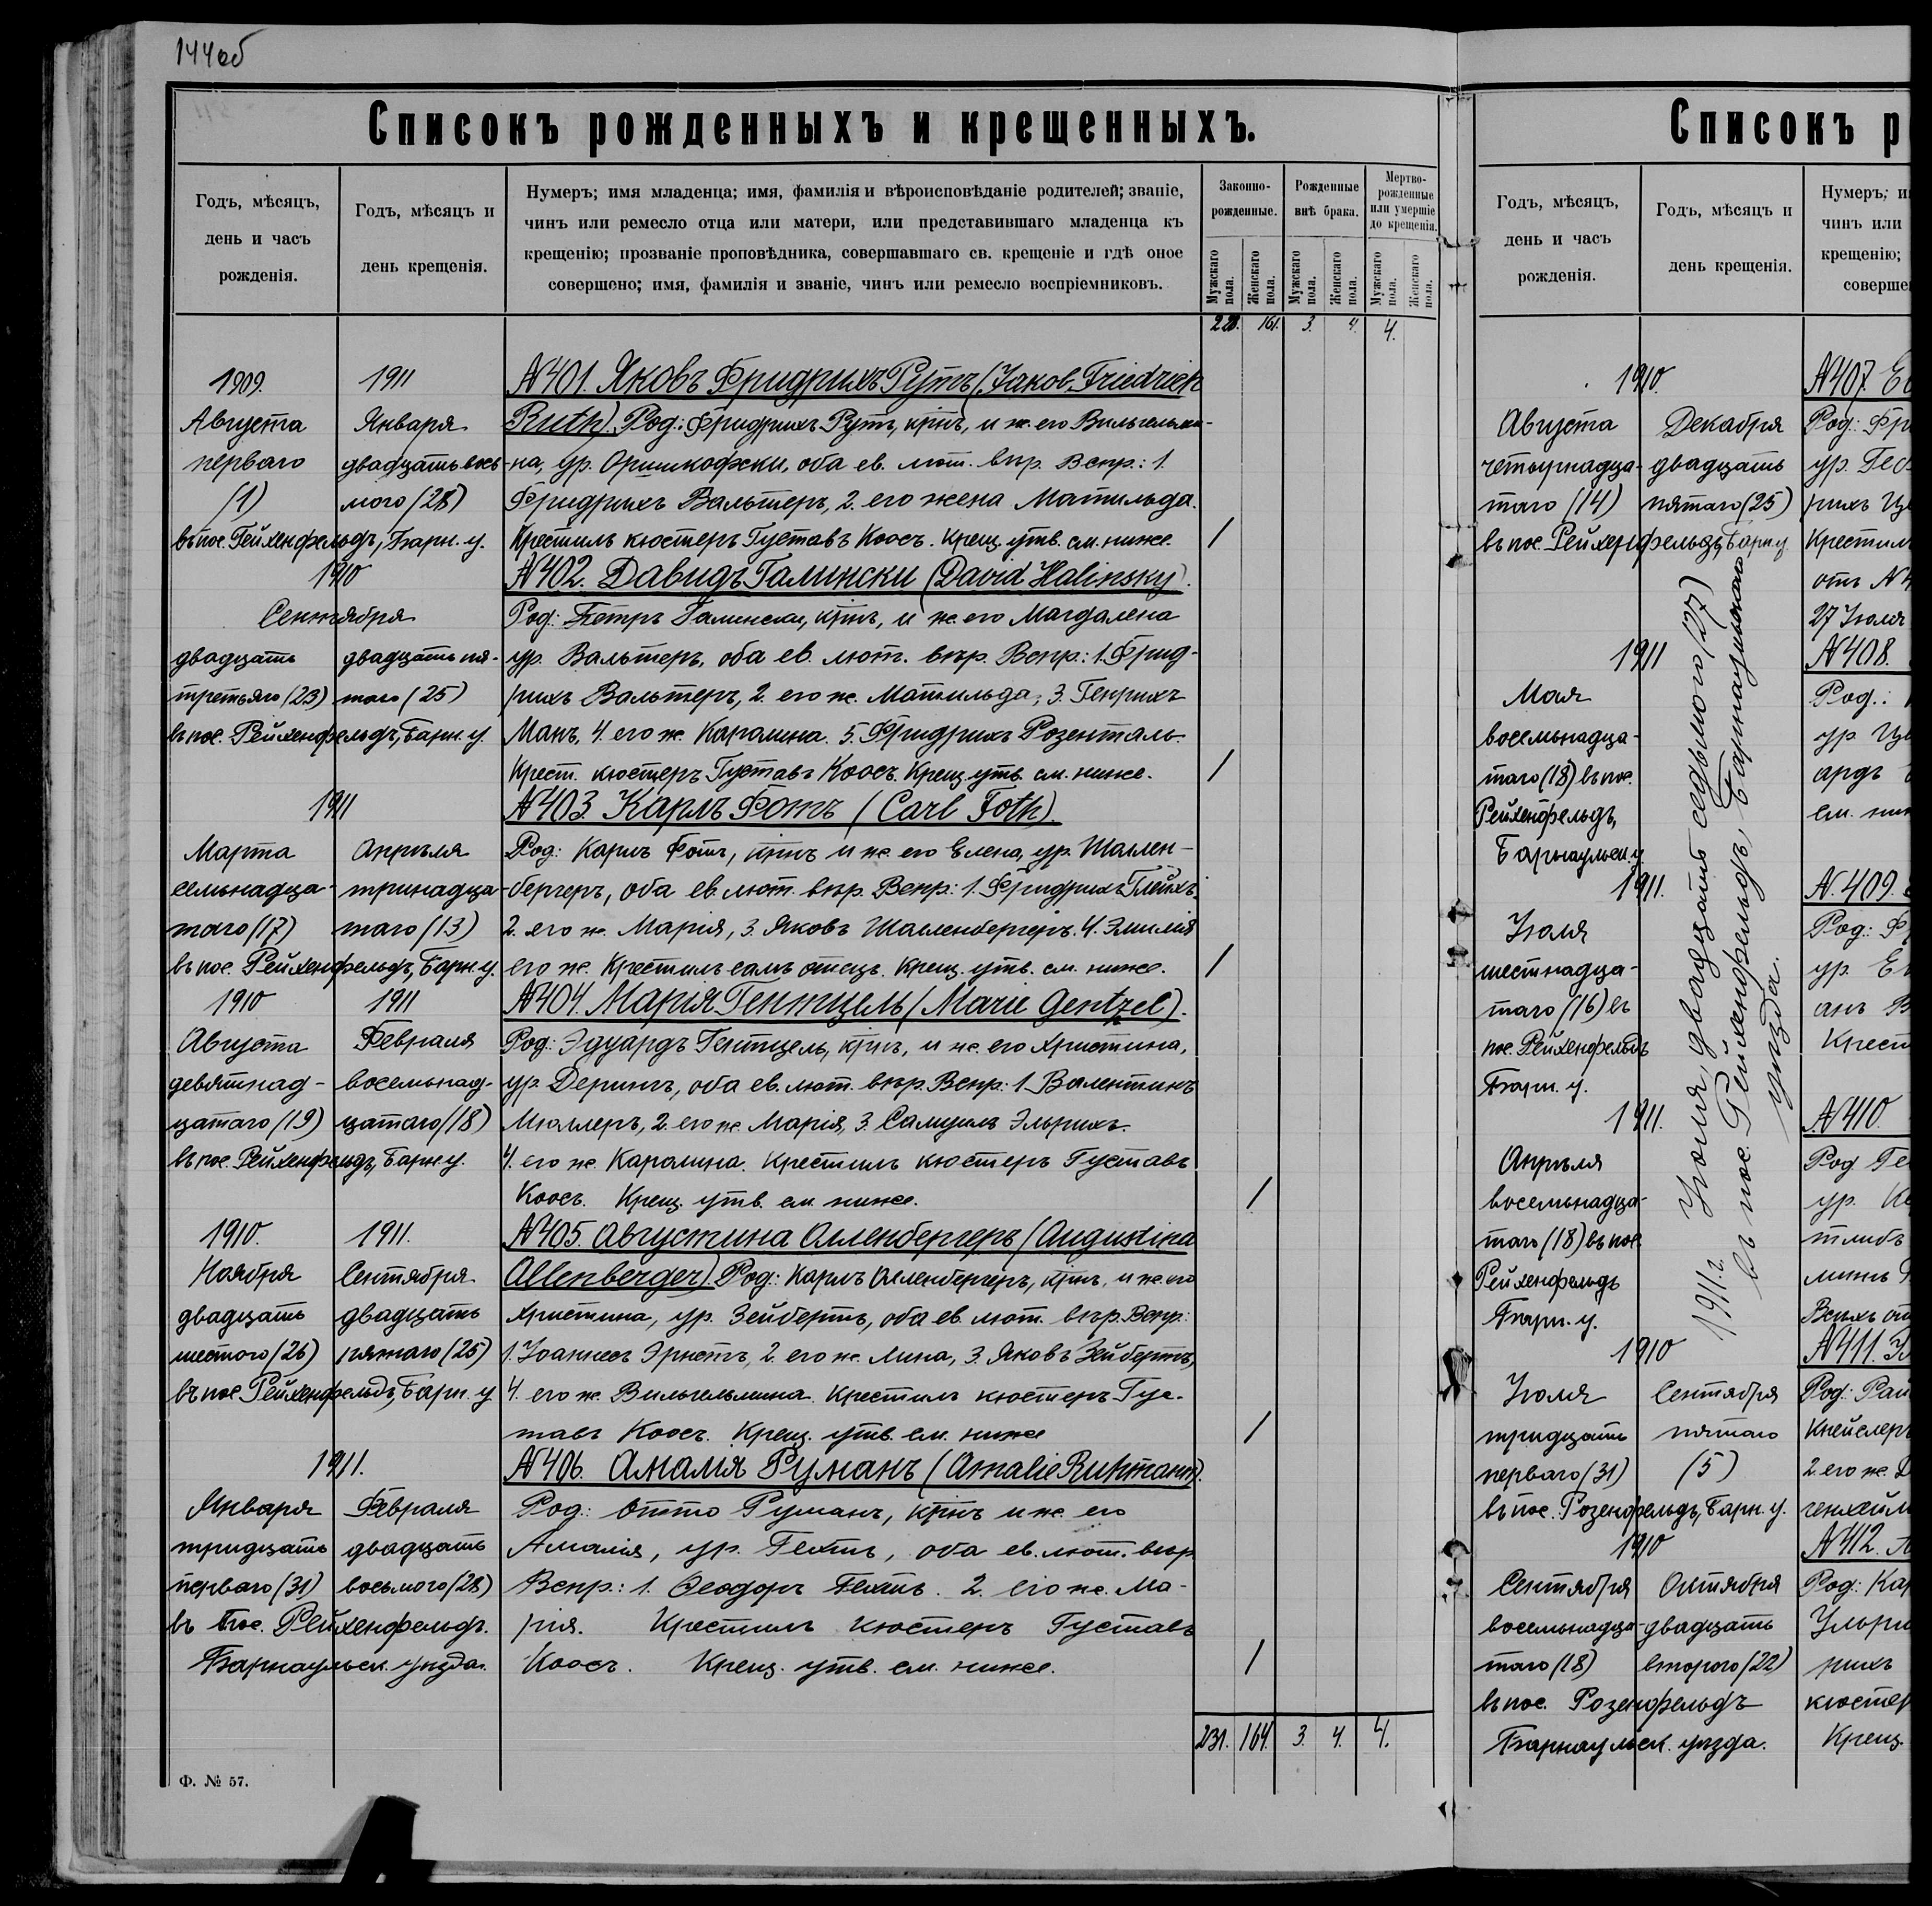 144об
Списокъ рожденныхъ и крещенныхъ.
Годъ, мѣсяцъ, день и часъ рожденія.
Годъ, мѣсяцъ и день крещенія.
Нумеръ; имя младенца; имя, фамилія и вѣроисповѣданіе родителей; званіе,
чинъ или ремесло отца или матери, или представившаго младенца къ
крещенію; прозваніе проповѣдника, совершавшаго св. крещеніе и гдѣ оное
совершено; имя, фамилія и званіе, чинъ или ремесло воспріемниковъ.
Законно-рожденные.
Рожденные внѣ брака.
Мертво-рожденные или умершіе до крещенія.
Мужскаго пола.
Женскаго пола.
Мужскаго пола.
Женскаго пола.
Мужскаго пола.
Женскаго пола.
228. 161. 3. 4. 4.
1909. 1911 №401. Яковъ Фридрихъ Рутъ (Jakob Friedrich
Августа Января Ruth). Род.: Фридрихъ Рутъ, крнъ, и ж. его Вильгельми-
перваго двадцать вось- на, ур. Оришкофски, оба ев. лют. вѣр. Вспр.: 1.
(1) мого (28) Фридрихъ Вальтеръ, 2. его жена Матильда.
въ пос. Рейхенфельдъ, Барн. у. Крестилъ кюстеръ Густавъ Коосъ. Крещ. утв. см. ниже. /
1910 №402. Давидъ Галински (David Halinsky).
Сентября Род: Петръ Галински, крнъ, и ж. его Магдалена
двадцать двадцать пя- ур. Вальтеръ, оба ев. лют. вѣр. Вспр.: 1. Фрид-
третьяго (23) таго (25) рихъ Вальтеръ, 2. его ж. Матильда, 3. Генрихъ
въ пос. Рейхенфельдъ, Барн. у. Манъ, 4. его ж. Каролина. 5. Фридрихъ Розенталь.
Крест. кюстеръ Густавъ Коосъ. Крещ. утв. см. ниже. /
1911 №403. Карлъ Фотъ (Carl Foth).
Марта Апрѣля Род: Карлъ Фотъ, крнъ и ж. его Елена, ур. Шален-
семьнадца- тринадца- бергеръ, оба ев. лют. вѣр. Вспр: 1. Фридрихъ Глейхъ.
таго (17) таго (13) 2. его ж. Марія, 3. Яковъ Шалленбергеръ. 4. Эмилія
въ пос. Рейхенфельдъ, Барн. у. его ж. Крестилъ самъ отецъ. Крещ. утв. см. ниже. /
1910 1911 №404. Марія Гентцель (Marie Gentzel).
Августа Февраля Род: Эдуардъ Гентцель, крнъ, и ж. его Христина,
девятнад- восемьнад- ур. Дерингъ, оба ев. лют. вѣр. Вспр: 1. Валентинъ
цатаго (19) цатаго (18) Мюллеръ, 2. его ж. Марія, 3. Самуилъ Эльрихъ.
въ пос. Рейхенфельдъ, Барн. у. 4. его ж. Каролина. Крестилъ кюстеръ Густавъ
Коосъ. Крещ. утв. см. ниже. /
1910. 1911. №405. Августина Алленбергеръ (Augustina
Ноября Сентября Allenberger). Род: Карлъ Алленбергеръ, крнъ, и ж. его
двадцать двадцать Христина, ур. Зейбертъ, оба ев. лют. вѣр. Вспр:
шестого (26) пятаго (25) 1. Іоаннесъ Эрнстъ, 2. его ж. Лина, 3. Яковъ Зейбертъ,
въ пос. Рейхенфельдъ, Барн. у 4. его ж. Вильгельмина. Крестилъ кюстеръ Гус-
тавъ Коосъ. Крещ. утв. см. ниже /
1911. №406. Амалія Руманъ (Amalie Ruhmann).
Января Февраля Род: Отто Руманъ, крнъ и ж. его
тридцать двадцать Амалія, ур. Гехтъ, оба ев. лют. вѣр
перваго (31) восьмого (28) Вспр: 1. Ѳеодоръ Гехтъ. 2. его ж. Ма-
въ пос. Рейхенфельдъ. рія. Крестилъ кюстеръ Густавъ
Барнаульск. уѣзда. Коосъ. Крещ. утв. см. ниже. /
231. 164. 3. 4. 4.
Ф. № 57.
Списокъ р
Годъ, мѣсяцъ, день и часъ рожденія.
Годъ, мѣсяцъ и день крещенія.
Нумеръ; и
чинъ или
крещенію;
соверше
1910. №407. Е
Августа Декабря Род.: Фр
четырнадца- двадцать ур. Гео
таго (14) пятаго (25) рихъ Це
въ пос. Рейхенфельдъ, Барн. у. Крестил
отъ №4
27 Іюля
1911 №408.
Мая Род.:
восемьнадца- ур
таго (18) въ пос. ардъ
Рейхенфельдъ, см. ни
Барнаульск. у.
1911. №409.
Іюля Род: Ф
шестнадца- ур. Ел
таго (16) въ анъ В
пос. Рейхенфельдъ Крест
Барн. у.
1911. №410.
Апрѣля Род. Ге
восемьнадца- ур. Ке
таго (18) въ пос. тлибъ
Рейхенфельдъ
Барн. у. Всѣхъ от
1911 г. Іюля, двадцать седьмого (27)
въ пос. Рейхенфельдъ, Барнаульскаго
уѣзда.
1910 №411.
Іюля Сентября Род: Рай
тридцать пятаго Кнейслеръ
перваго (31) (5) 2. его ж. Д
въ пос. Розенфельдъ, Барн. у. генхейм
1910 №412.
Сентября Октября Род: Кар
восемьнадца- двадцать Ульри
таго (18) второго (22) рихъ
въ пос. Розенфельдъ кюстер
Барнаульск. уѣзда. Крещ.